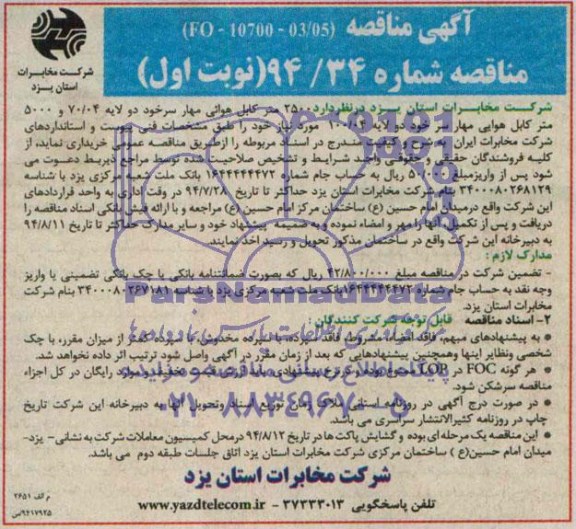 آگهی مناقصه (FO - 10700 - 03/05)
مناقصه شماره ۹۴/۳۴ (نوبت اول)
شرکت مخابرات
استان یزد
شرکت مخابرات استان یزد درنظردارد ۲۵۰۰ متر کابل هوائی مهار سرخود دو لایه ۷۰/۰۴ و ۵۰۰۰
متر کابل هوایی مهار سر خود دو لایه ۱۰۰/۰۴ مورد نیاز خود را طبق مشخصات فنی پیوست و استانداردهای
شرکت مخابرات ایران به شرح و کیفیت مندرج در اسناد مربوطه را ازطریق مناقصه عمومی خریداری نماید، از
کلیه فروشندگان حقیقی و حقوقی واجد شرایط و تشخیص صلاحیت شده توسط مراجع ذیربط دعوت می
شود پس از واریزمبلغ ریال به حساب جام شماره ۱۶۴۴۴۴۴۴۷۲ بانک ملت شعبه مرکزی یزد با شناسه
۳۴۰۰۰۸۰۲۶۸۱۲۹ بنام شرکت مخابرات استان یزد حداکثر تا تاریخ ۹۴/۷/۲۸ در وقت اداری به واحد قراردادهای
این شرکت واقع درمیدان امام حسین (ع) ساختمان مرکز امام حسین (ع) مراجعه و با ارائه فیش بانکی اسناد مناقصه را
دریافت و پس از تکمیل، آنها را مهر و امضاء نموده و به ضمیمه پیشنهاد خود و سایر مدارک حداکثر تا تاریخ ۹۴/۸/۱۱
به دبیرخانه این شرکت واقع در ساختمان مذکور تحویل و رسید اخذ نمایند.
مدارک لازم :
- تضمین شرکت در مناقصه مبلغ ۴۲/۸۰۰/۰۰۰ ریال که بصورت ضمانتنامه بانکی یا چک بانکی تضمینی یا واریز
وجه نقد به حساب جام شماره ۱۶۴۴۴۴۴۴۷۲ بانک ملت شعبه مرکزی یزد با شناسه ۳۴۰۰۰۸۰۲۶۷۱۸۱ بنام شرکت
مخابرات استان یزد.
۲- اسناد مناقصه قابل توجه شرکت کنندگان :
● به پیشنهادهای مبهم، فاقد امضاء، مشروط، فاقد سپرده، یا سپرده مخدوش، یا سپرده کمتر از میزان مقرر، با چک
شخصی ونظایر اینها وهمچنین پیشنهادهایی که بعد از زمان مقرر در آگهی واصل شود ترتیب اثر داده نخواهد شد.
● هر گونه FOC در LOB ممنوع بوده و در نرخ پیشنهادی باید ارزش هر نوع تخفیف و موارد رایگان در کل اجزاء
مناقصه سرشکن شود.
● در صورت درج آگهی در روزنامه استانی ملاک زمان توزیع اسناد وتحویل آنها به دبیرخانه این شرکت تاریخ
چاپ در روزنامه کثیرالانتشار سراسری می باشد.
● این مناقصه یک مرحله ای بوده و گشایش پاکت ها در تاریخ ۹۴/۸/۱۲ درمحل کمیسیون معاملات شرکت به نشانی - یزد-
میدان امام حسین(ع) ساختمان مرکزی شرکت مخابرات استان یزد اتاق جلسات طبقه دوم می باشد.
شرکت مخابرات استان یزد
تلفن پاسخگویی ۳۷۲۳۳۰۱۳ - www.yazdtelecom.ir
م الف ۲۶۵۱
۹۴۱۷۹۲۵/ص
ParsNamadData
پایگاه اطلاع رسانی مناقصه و مزایده
۰۲۱-۸۸۳۴۹۶۷۰-۵